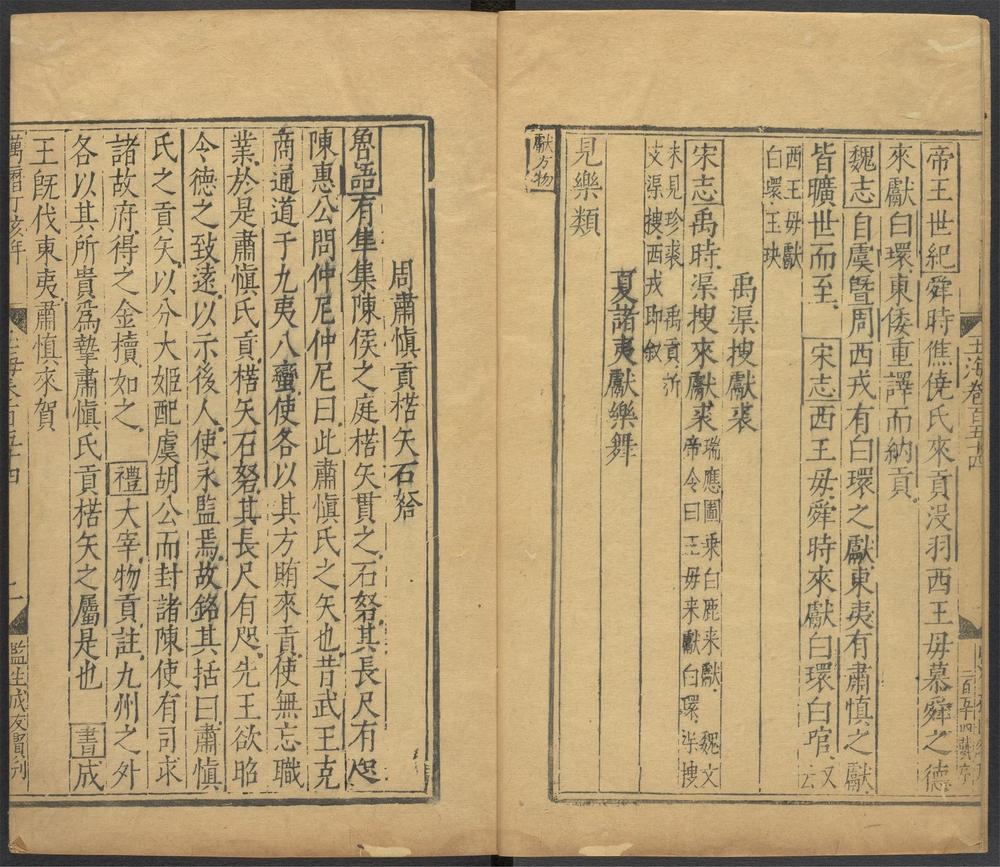 玉海卷百五十四
帝王世紀舜時僬僥氏來貢沒羽西王母慕舜之德
來獻白環東倭重譯而納貢
魏志自虞曁周西戎有白環之獻東夷有肅慎之獻
皆曠世而至 宋志西王母舜時來獻白環白琯又云
西王母獻
白環玉玦
禹渠搜獻裘
宋志禹時渠搜來獻裘瑞應圖乗白鹿来獻 魏文
帝令曰王母来獻白環渠搜
未見珍裘 禹貢析
支渠搜西戎即敘
夏諸夷獻樂舞
見樂類
獻方物
周肅愼貢楛矢石砮
魯語有隼集陳侯之庭楛矢貫之石砮其長尺有咫
陳惠公問仲尼仲尼曰此肅愼氏之矢也昔武王克
商通道于九夷八蠻使各以其方賄來貢使無忘職
業於是肅愼氏貢楛矢石砮其長尺有咫先王欲昭
令德之致遠以示後人使永監焉故銘其括曰肅愼
氏之貢矢以分大姬配虞胡公而封諸陳使有司求
諸故府得之金櫝如之 禮大宰物貢註九州之外
各以其所貴爲摯肅愼氏貢楛矢之屬是也 書成
王旣伐東夷肅愼來賀
萬曆丁亥年
二
監生成友胃刊